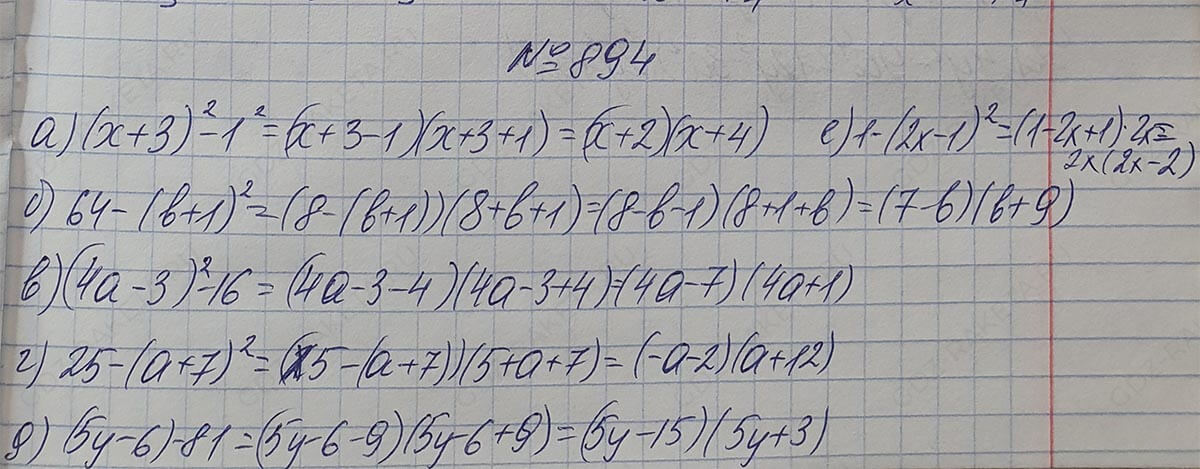 №894
а) (x+3)²-1²=(x+3-1)(x+3+1)=(x+2)(x+4) е) 1-(2x-1)²=(1-2x+1)·2x=
2x(2x-2)
б) 64-(b+1)²=(8-(b+1))(8+b+1)=(8-b-1)(8+1+b)=(7-b)(b+9)
в) (4a-3)²-16=(4a-3-4)(4a-3+4)=(4a-7)(4a+1)
г) 25-(a+7)²=(5-(a+7))(5+a+7)=(-a-2)(a+12)
д) (5y-6)-81=(5y-6-9)(5y-6+9)=(5y-15)(5y+3)